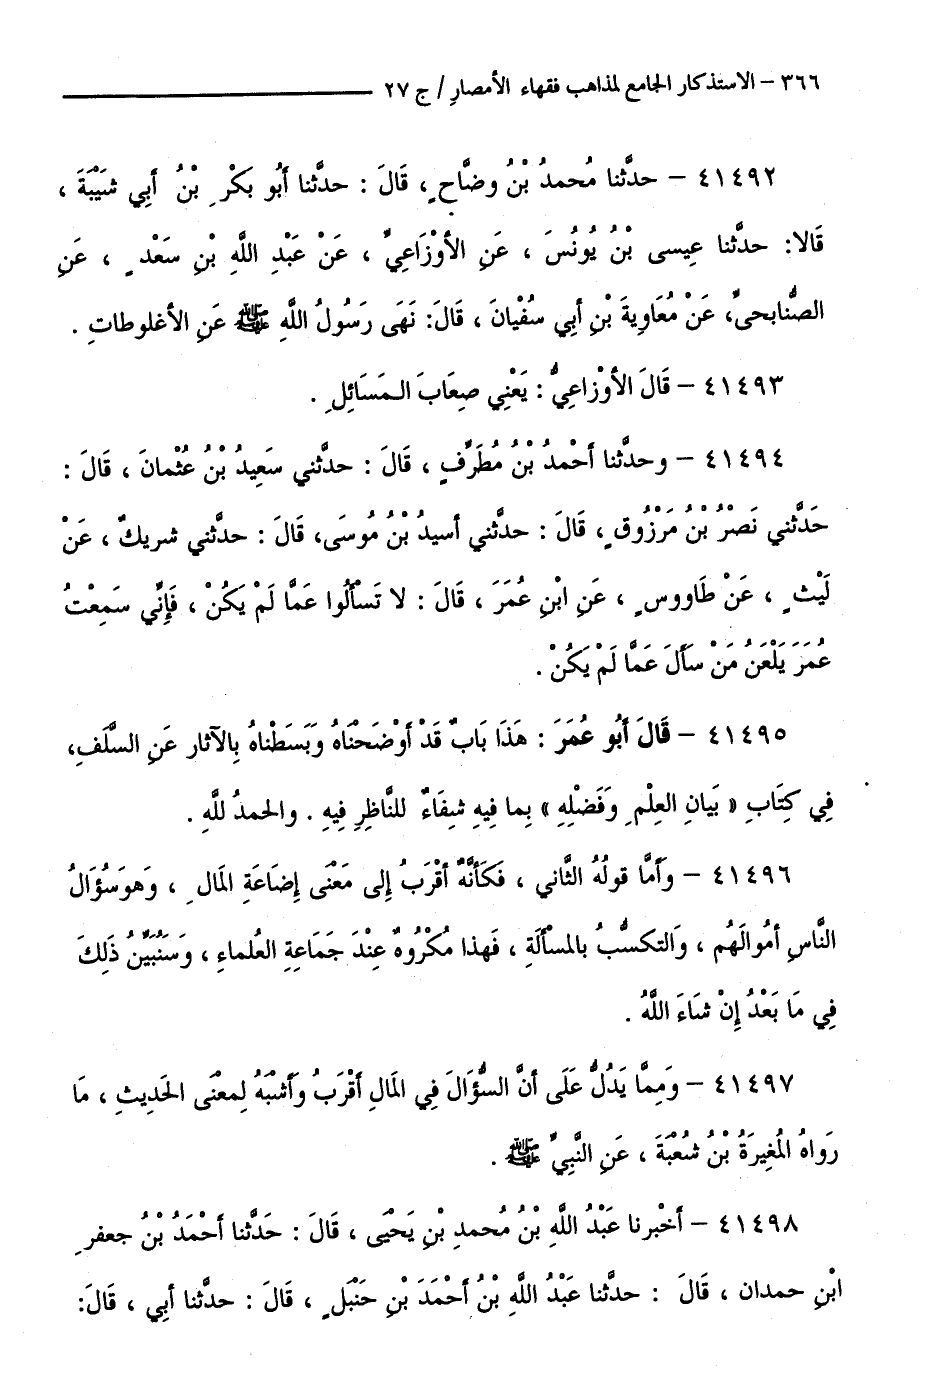 ٣٦٦ – الاستذكار الجامع لمذاهب فقهاء الأمصارِ / ج ٢٧
٤١٤٩٢ – حدثَّنا مُحمدُ بْنُ وضَّاحٍ ، قَالَ : حدثَّنا أَبُو بَكْرِ بْنُ أَبِي شَيْبَةَ ،
قَالا: حدثَّنا عِيسى بْنُ يُونُسَ ، عَنِ الأَوْزَاعِيِّ ، عَنْ عَبْدِ اللَّهِ بْنِ سَعْدٍ ، عَنِ
الصُّنابحىِّ، عَنْ مُعَاوِيةَ بْنِ أَبي سفْيَانَ ، قَالَ: نَهَى رَسُولُ اللَّهِ ﷺ عَنِ الأغلوطاتِ .
٤١٤٩٣ – قَالَ الأَوْزَاعِيُّ : يَعْنِي صِعَابَ الـمَسَائِلِ .
٤١٤٩٤ – وحدثَّنا أَحْمدُ بْنُ مُطَرِّفٍ ، قَالَ : حدثَّني سَعِيدُ بْنُ عُثْمانَ ، قَالَ :
حَدثَّني نَصْرُ بْنُ مَرْزُوقٍ ، قَالَ : حدثَّني أسيدُ بْنُ مُوسَى، قَالَ : حدثَّني شريكٌ ، عَنْ
لَيْثٍ ، عَنْ طَاووسٍ ، عَنِ ابْنِ عُمَرَ ، قَالَ : لا تَسْأَلُوا عَمَّا لَمْ يَكُنْ ، فَإِنِّي سَمِعْتُ
عُمَرَ يَلْعَنُ مَنْ سَأَلَ عَمَّا لَمْ يَكُنْ .
٤١٤٩٥ – قَالَ أَبُو عُمَرَ : هَذَا بَابٌ قَدْ أَوْضَحْنَاهُ وَبَسَطْناهُ بِالآثار عَنِ السَّلَفِ،
فِي كِتَابِ « بَيانِ العِلْمِ وَفَضْلِهِ » بِما فِيهِ شِفَاءٌ للنَّاظِرِ فِيهِ . والحمدُ للَّهِ .
٤١٤٩٦ – وَأَمَّا قولُهُ الثَّاني ، فَكَأَنَّهُ أَقْرَبُ إِلى مَعْنَى إِضَاعَةِ المَالِ ، وَهوَ سُؤَالُ
النَّاسِ أَمُوالَهُم ، وَالتكسُّبُ بالمسْأَلَةِ ، فَهذا مُكْرُوهٌ عِنْدَ جَمَاعَةِ العُلماءِ ، وَسَنُبَيِّنُ ذَلِكَ
فِي مَا بَعْدُ إِنْ شَاءَ اللَّهُ .
٤١٤٩٧ – وَمِمَّا يَدُلُّ عَلَى أَنَّ السُّؤَالَ فِي المَالِ أَقْرَبُ وَأَشْبَهُ لِمعْنَى الحَدِيثِ ، مَا
رَواهُ المُغِيرَةُ بْنُ شُعْبَةَ ، عَنِ النَّبِيِّ ﷺ .
٤١٤٩٨ – أَخْبرنا عَبْدُ اللَّهِ بْنُ مُحمدِ بْنِ يَحْيَى ، قَالَ : حَدَّثنا أَحْمَدُ بْنُ جعفرِ
ابْنِ حمدان ، قَالَ : حدثَّنا عَبْدُ اللَّهِ بْنُ أَحْمَدَ بْنِ حَنْبَلٍ ، قَالَ : حدثَّنا أَبِي ، قَالَ: